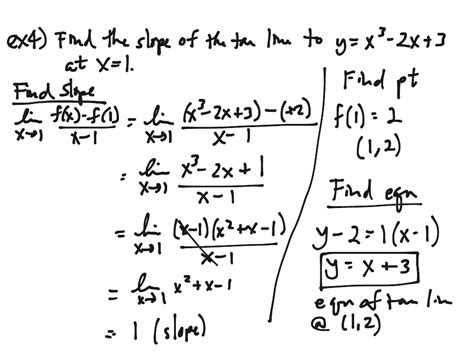 ex4) Find the slope of the tan line to y = x³ - 2x + 3
at x = 1.
Find slope
lim x→1 (f(x) - f(1))/(x - 1) = lim x→1 ((x³ - 2x + 3) - (+2))/(x - 1)
= lim x→1 (x³ - 2x + 1)/(x - 1)
= lim x→1 ((x-1)(x² + x - 1))/(x - 1)
= lim x→1 x² + x - 1
= 1 (slope)
Find pt
f(1) = 2
(1, 2)
Find eqn
y - 2 = 1(x - 1)
y = x + 3
eqn of tan lin
@ (1,2)